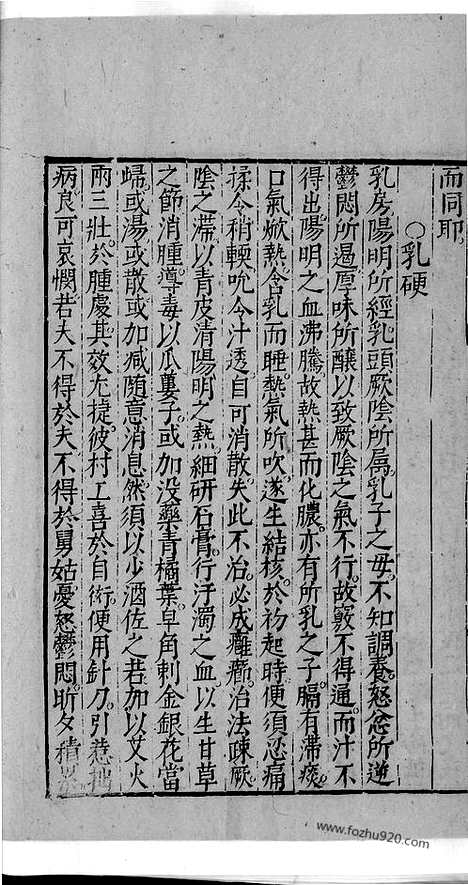 而同耶
○乳硬
乳房陽明所經乳頭厥陰所属乳子之母不知調養怒忿所逆
鬱悶所遏厚味所釀以致厥陰之氣不行故竅不得通而汁不
得出陽明之血沸騰故熱甚而化膿亦有所乳之子膈有滯痰
口氣焮熱含乳而睡熱氣所吹遂生結核於初起時便須忍痛
揉令稍輭吮令汁透自可消散失此不治必成癰癤治法疎厥
陰之滯以青皮清陽明之熱細研石膏行汙濁之血以生甘草
之節消腫導毒以瓜蔞子或加没藥青橘葉皁角刺金銀花當
歸或湯或散或加减随意消息然須以少酒佐之若加以艾火
兩三壯於腫處其效尤捷彼村工喜於自衒便用針刀引惹拙
病良可哀憫若夫不得於夫不得於舅姑憂怒鬱悶昕夕積
www.fozhu920.com